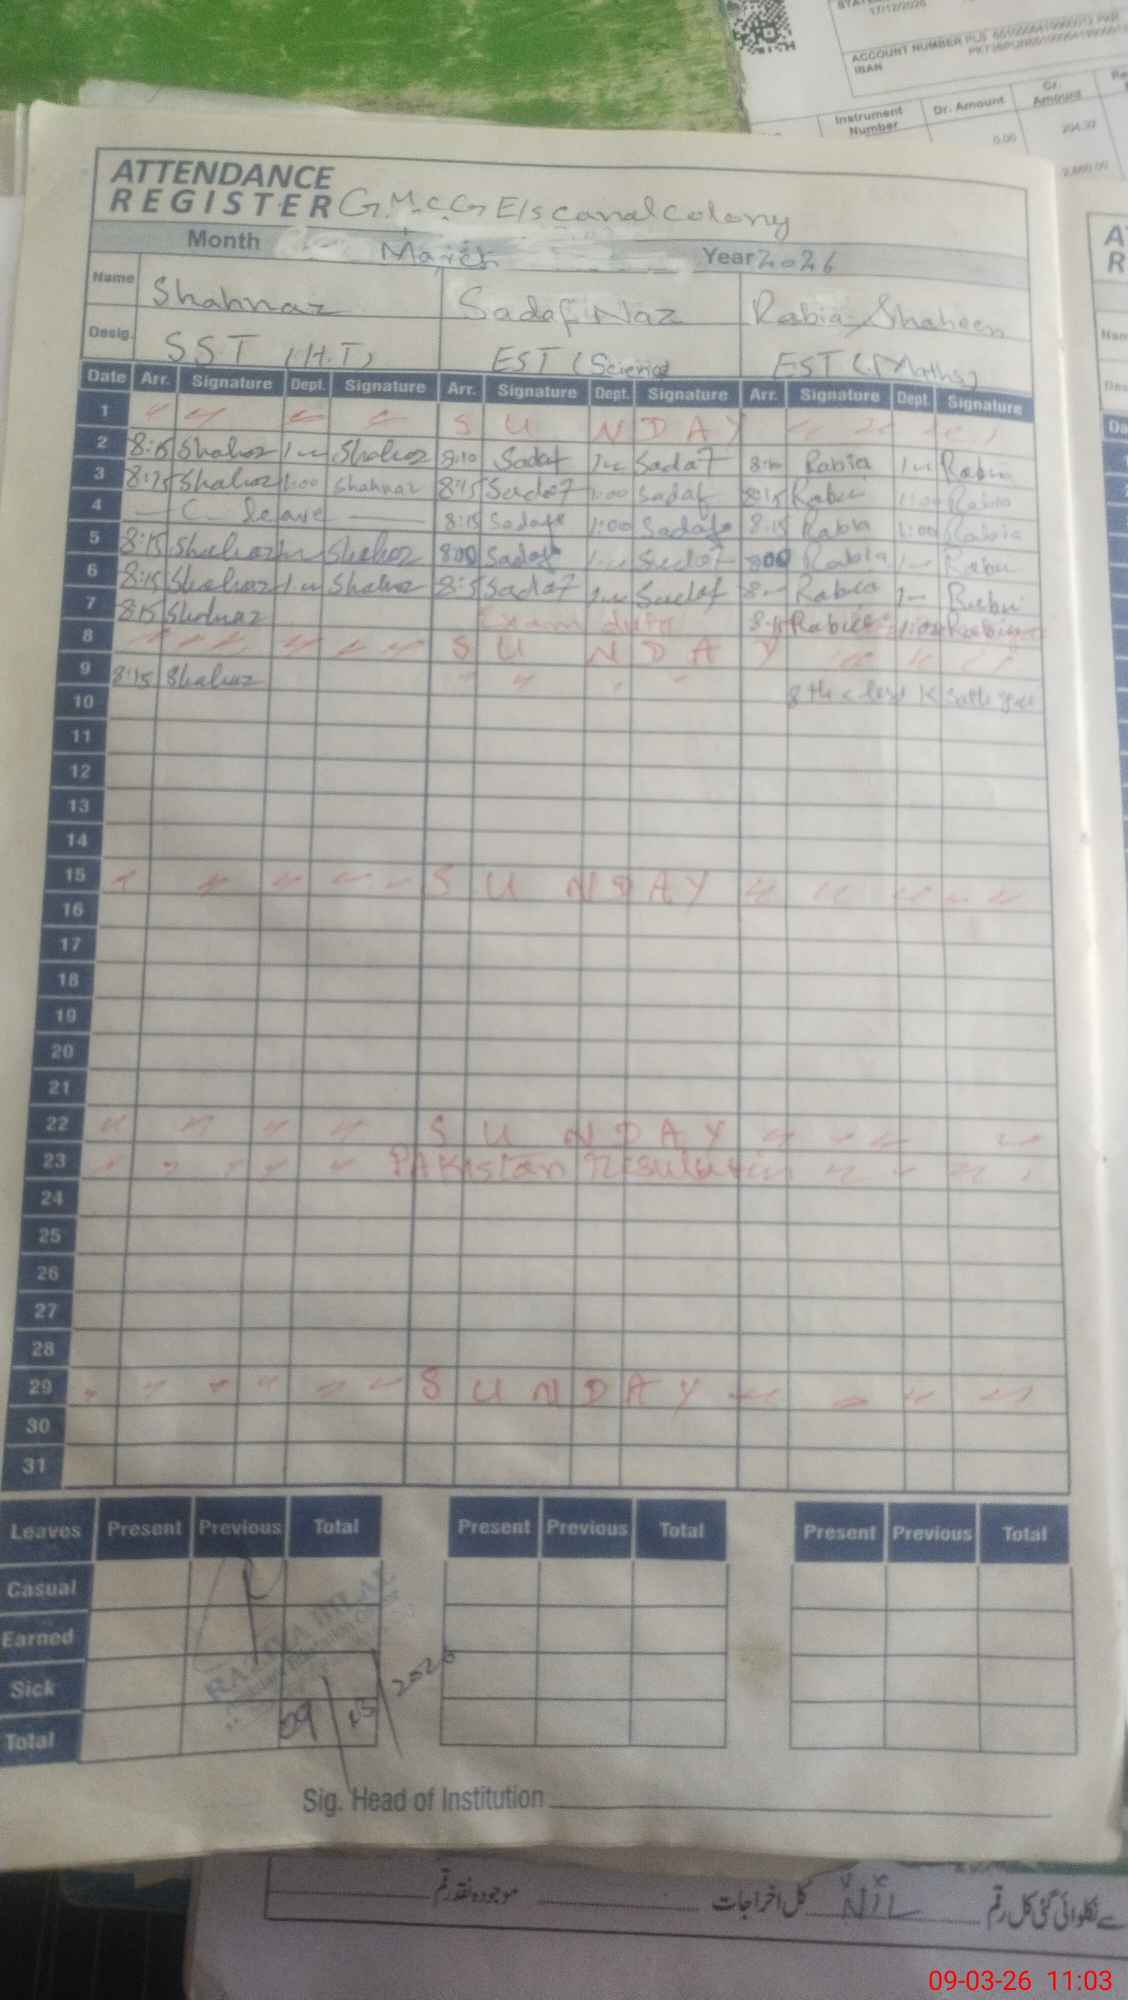 17/12/2026
ACCOUNT NUMBER PLS
IBAN
Instrument Number Dr. Amount Cr. Amount
0.00 204.32
ATTENDANCE
REGISTER G.M.C.G E/S canal colony
Month March Year 2026
Name Shahnaz Sadaf Naz Rabia Shaheen
Desig. SST (H.T) EST (Science) EST (Maths)
Date Arr. Signature Dept. Signature Arr. Signature Dept. Signature Arr. Signature Dept. Signature
1 S U N D A Y
2 8:15 Shahnaz Shahnaz 8:10 Sadaf Sadaf Rabia Rabia
3 8:15 Shahnaz 1:00 Shahnaz 8:15 Sadaf 1:00 Sadaf 8:15 Rabia 1:00 Rabia
4 C leave 8:15 Sadaf 1:00 Sadaf 8:15 Rabia 1:00 Rabia
5 8:15 Shahnaz Shahnaz 800 Sadaf Sadaf 800 Rabia Rabia
6 8:15 Shahnaz Shahnaz 8:15 Sadaf Sadaf Rabia Rabia
7 8:15 Shahnaz Exam duty 8:15 Rabia 1:00 Rabia
8 S U N D A Y
9 8:15 Shahnaz
10 8th class K sath
11
12
13
14
15 S U N D A Y
16
17
18
19
20
21
22 S U N D A Y
23 PAKistan Resulution
24
25
26
27
28
29 S U N D A Y
30
31
Leaves Present Previous Total Present Previous Total Present Previous Total
Casual
Earned
Sick
Total
RAZIYA BILAL
09/03/2026
Sig. Head of Institution
موجودہ نقد رقم کل اخراجات NIL سے نکلوائی گئی کل رقم
09-03-26 11:03